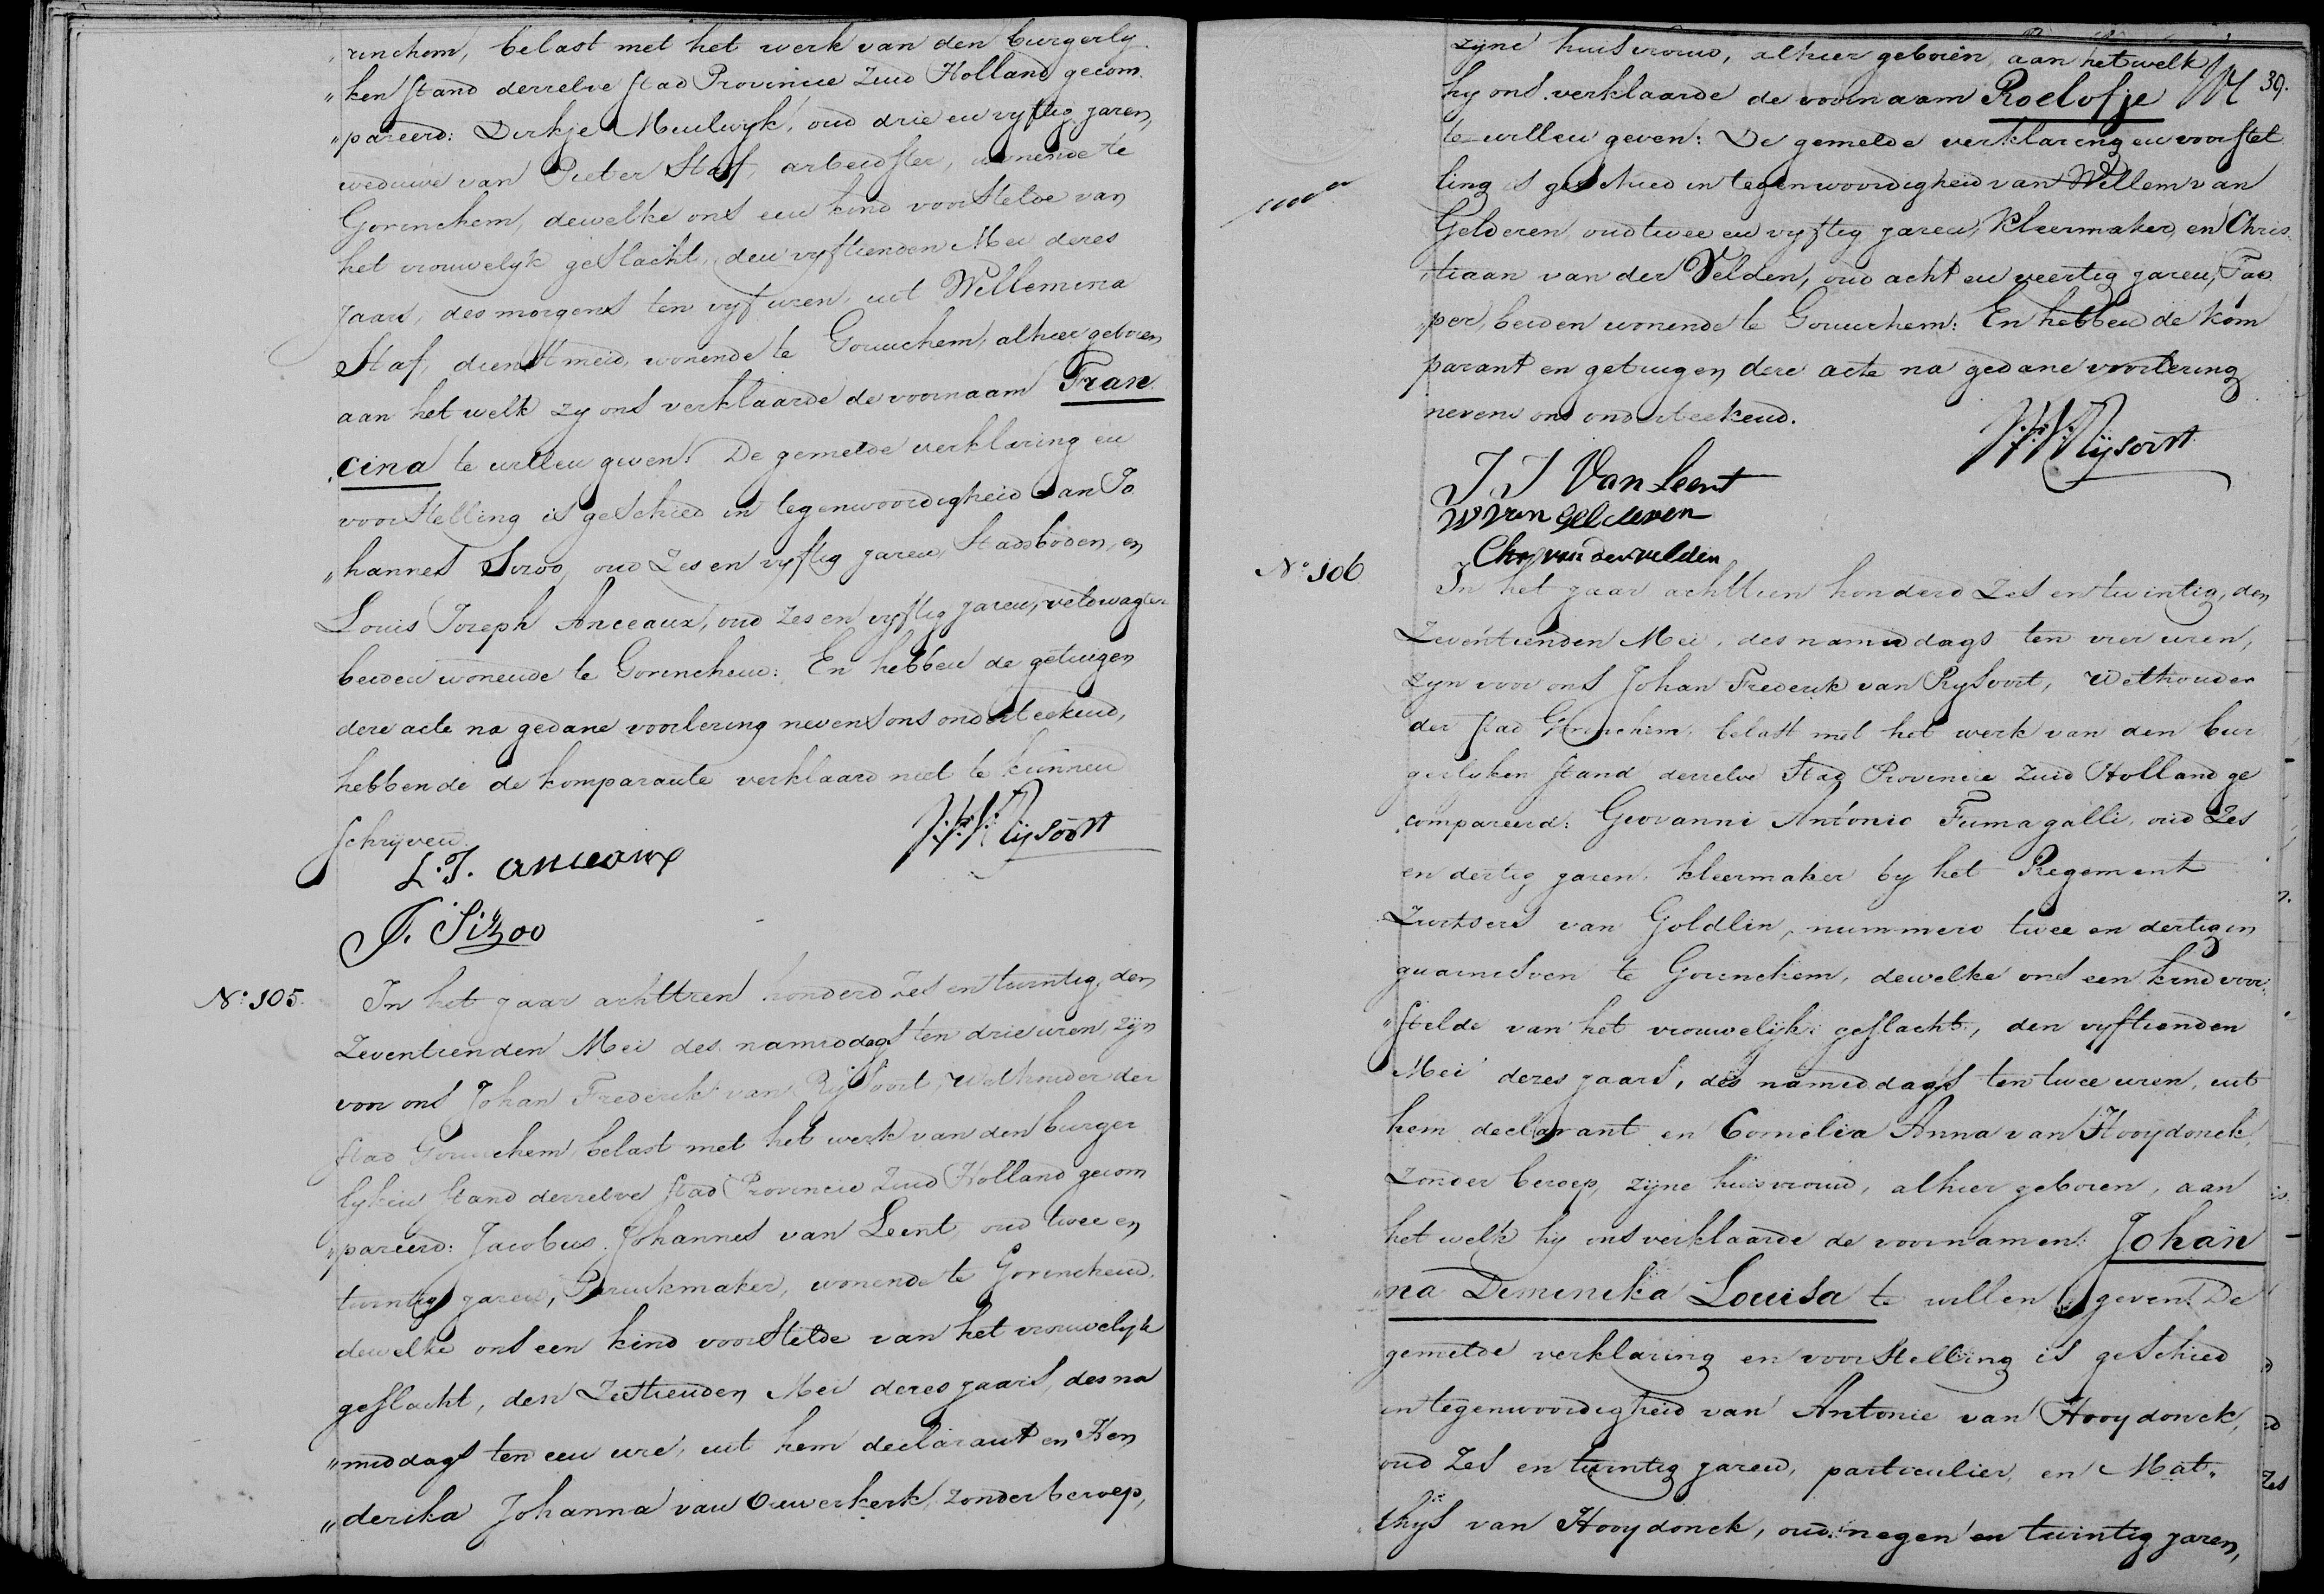 rinchem, belast met het werk van den burgerly
„ken stand derzelve stad Provincie Zuid Holland gecom
„pareerd: Dirkje Meulwyk, oud drie en vyftig jaren,
weduwe van Pieter Staf, arbeidster, wonende te
Gorinchem, dewelke ons een kind voorstelde van
het vrouwelyk geslacht, den vyftienden Mei dezes
Jaars, des morgens ten vyf uren, uit Willemina
Staf, dienstmeid, wonende te Gorinchem, alhier geboren
aan het welk zy ons verklaarde de voornaam Fran
„cina te willen geven: De gemelde verklaring en
voorstelling is geschied in tegenwoordigheid van Jo
„hannes Sizoo, oud Zes en vyftig jaren, Stadsboden, en
Louis Joseph Anceaux, oud zes en vyftig jaren, veldwagter
beiden wonende te Gorinchem: En hebben de getuigen
deze acte na gedane voorlezing nevens ons onderteekend,
hebbende de komparante verklaard niet te kunnen
schryven
L. J. anceaux
J. Sizoo
No: 105.
In het jaar achttien honderd Zes en twintig, den
Zeventienden Mei des namiddags ten drie uren, zyn
voor ons Johan Frederik van Rysoort, Wethouder der
stad Gorinchem, belast met het werk van den burger
lyken stand derzelve stad Provincie Zuid Holland gecom
„pareerd: Jacobus Johannes van Leent, oud twee en
twintig jaren, Pruikmaker, wonende te Gorinchem,
dewelke ons een kind voorstelde van het vrouwelyk
geslacht, den Zestienden Mei dezes jaars, des na
„middags ten een ure, uit hem declarant en Hen
„derika Johanna van Ouwerkerk, zonder beroep,
zyne huisvrouw, alhier geboren, aan het welk
hy ons verklaarde de voornaam Roelofje
39.
te willen geven: De gemelde verklaring en voorstel
ling is geschied in tegenwoordigheid van Willem van
Gelderen, oud twee en vyftig jaren, kleermaker, en Chris
„tiaan van der Velden, oud acht en veertig jaren, Tap
„per, beiden wonende te Gorinchem: En hebben de kom
parant en getuigen deze acte na gedane voorlezing
nevens ons onderteekend.
J J Van Leent
W van gelderen
Chr van der velden
No: 106
In het jaar achttien honderd Zes en twintig, den
Zeventienden Mei, des namiddags ten vier uren,
zyn voor ons Johan Frederik van Rysoort, Wethouder
der stad Gorinchem, belast met het werk van den bur
gerlyken stand derzelve Stad Provincie Zuid Holland ge
„compareerd: Giovanni Antonio Fumagalli, oud Zes
en dertig jaren, kleermaker by het Regement
Zwitsers van Goldlin, nummero twee en dertig in
guarnisoen te Gorinchem, dewelke ons een kind voor
„stelde van het vrouwelyk geslacht, den vyftienden
Mei dezes jaars, des namiddags ten twee uren, uit
hem declarant en Cornelia Anna van Hooydonck,
Zonder beroep, zyne huisvrouw, alhier geboren, aan
het welk hy ons verklaarde de voornamen: Johan
„na Dominika Louisa te willen geven: De
gemelde verklaring en voorstelling is geschied
in tegenwoordigheid van Antonie van Hooydonck,
oud Zes en twintig jaren, particulier, en Mat„
thys van Hooydonck, oud negen en twintig jaren,